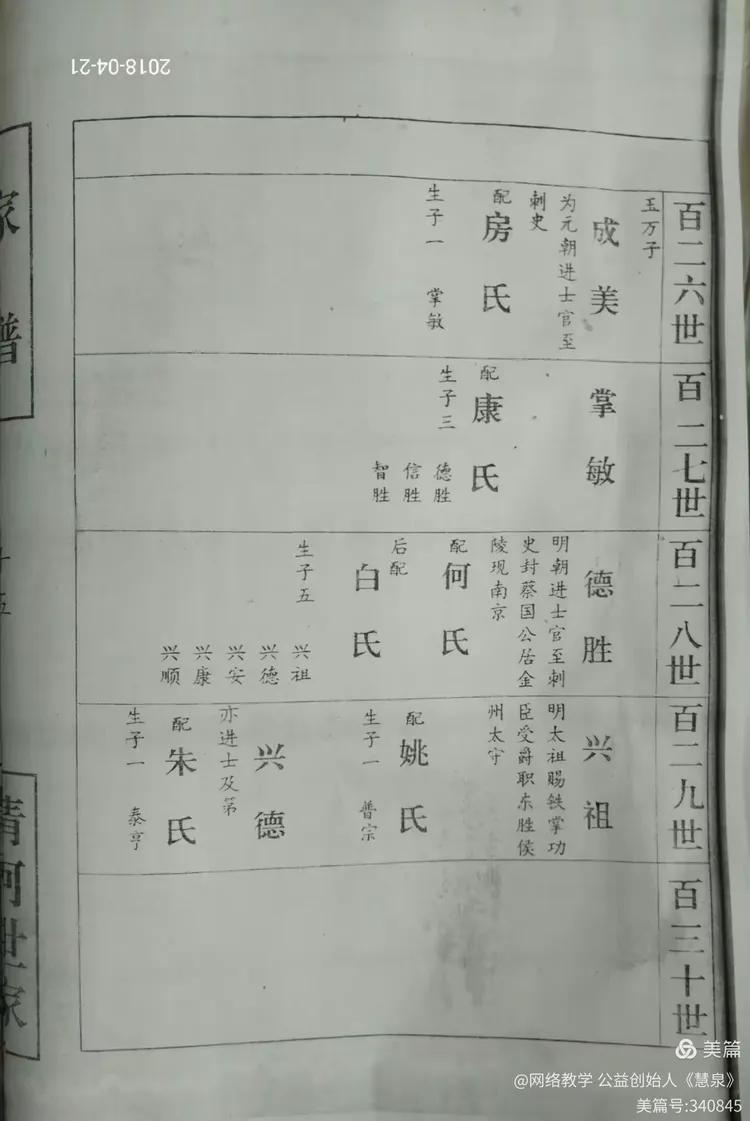 2018-04-21
百二六世
玉万子
成美
为元朝进士官至
刺史
配
房氏
生子一 掌敏
百二七世
掌敏
配
康氏
生子三
德胜
信胜
智胜
百二八世
德胜
明朝进士官至刺
史封蔡国公居金
陵现南京
配
何氏
后配
白氏
生子五
兴祖
兴德
兴安
兴康
兴顺
百二九世
兴祖
明太祖赐铁掌功
臣受爵职东胜侯
州太守
配
姚氏
生子一 普宗
兴德
亦进士及第
配
朱氏
生子一 泰亨
百三十世
家谱
十五
清河世家
美篇
@网络教学 公益创始人《慧泉》
美篇号:340845